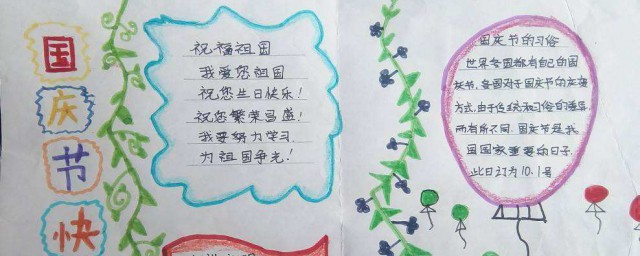 国
庆
节
快
祝福祖国
我爱您祖国
祝您生日快乐！
祝您繁荣昌盛！
我要努力学习
为祖国争光！
国庆节的习俗
世界各国都有自己的国
庆节，各国对于国庆节的庆祝
方式，由于传统和习俗的差异，
而有所不同．国庆节是我
国国家重要的日子．
此日订为10.1号